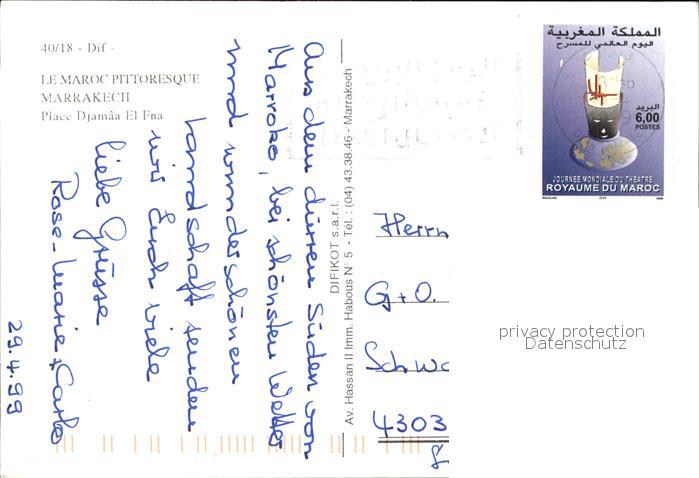 40/18 - Dif -
LE MAROC PITTORESQUE
MARRAKECH
Place Djamâa El Fna
Aus dem dürren Süden von
Marroko, bei schönsten Wetter
und wunderschönen
Landschaft senden
wir Euch viele
liebe Grüsse
Rose-Marie + Carlo
29.4.99
DIFIKOT s.a.r.l.
Av. Hassan II Imm. Habous N° 5 - Tél. : (04) 43.38.46 - Marrakech
المملكة المغربية
اليوم العالمي للمسرح
البريد
6,00
POSTES
JOURNEE MONDIALE DU THEATRE
ROYAUME DU MAROC
Herrn
G+O.
Schwa
4303
privacy protection
Datenschutz